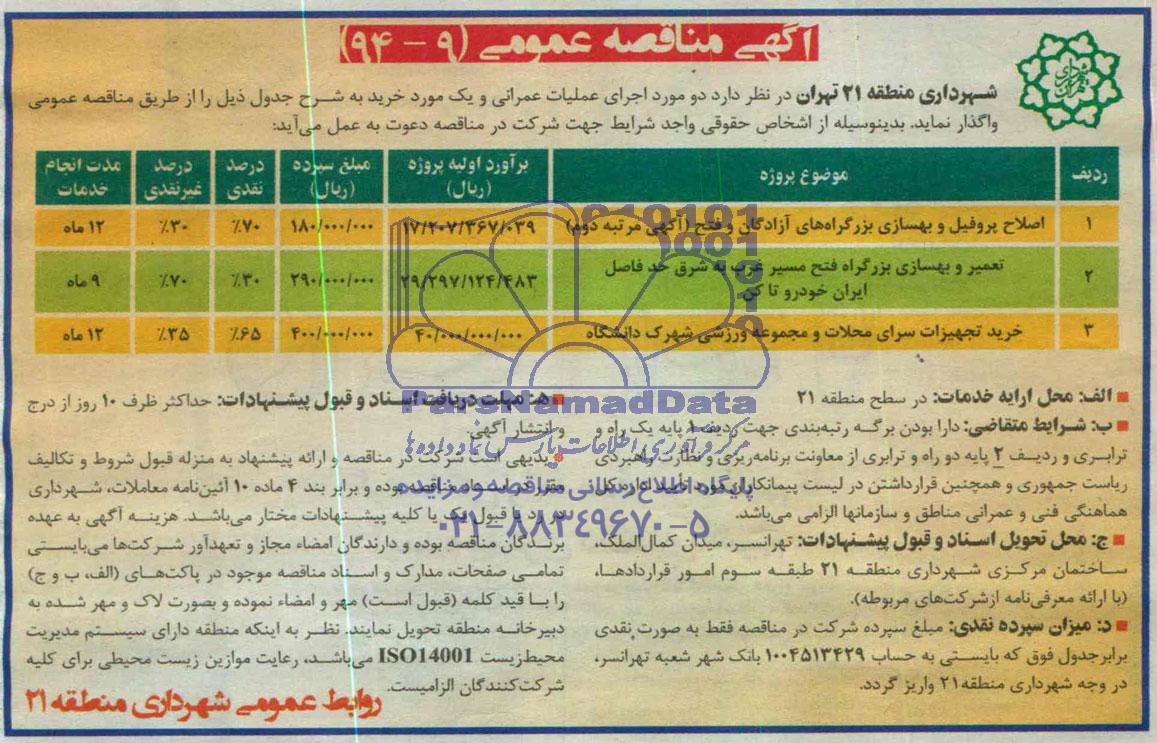 آگهی مناقصه عمومی (۹ - ۹۴)
شهرداری تهران
شهرداری منطقه ۲۱ تهران در نظر دارد دو مورد اجرای عملیات عمرانی و یک مورد خرید به شرح جدول ذیل را از طریق مناقصه عمومی
واگذار نماید. بدینوسیله از اشخاص حقوقی واجد شرایط جهت شرکت در مناقصه دعوت به عمل می‌آید:
ردیف موضوع پروژه برآورد اولیه پروژه (ریال) مبلغ سپرده (ریال) درصد نقدی درصد غیرنقدی مدت انجام خدمات
۱ اصلاح پروفیل و بهسازی بزرگراه‌های آزادگان و فتح (آگهی مرتبه دوم) ۱۷/۲۰۷/۳۶۷/۰۳۹ ۱۸۰/۰۰۰/۰۰۰ ۷۰٪ ۳۰٪ ۱۲ ماه
۲ تعمیر و بهسازی بزرگراه فتح مسیر غرب به شرق حد فاصل
ایران خودرو تا کن ۲۹/۲۹۷/۱۲۴/۴۸۳ ۲۹۰/۰۰۰/۰۰۰ ۳۰٪ ۷۰٪ ۹ ماه
۳ خرید تجهیزات سرای محلات و مجموعه ورزشی شهرک دانشگاه ۴۰/۰۰۰/۰۰۰/۰۰۰ ۴۰۰/۰۰۰/۰۰۰ ۶۵٪ ۳۵٪ ۱۲ ماه
الف: محل ارایه خدمات: در سطح منطقه ۲۱
ب: شرایط متقاضی: دارا بودن برگه رتبه‌بندی جهت ردیف ۱ پایه یک راه و
ترابری و ردیف ۲ پایه دو راه و ترابری از معاونت برنامه‌ریزی و نظارت راهبردی
ریاست جمهوری و همچنین قرارداشتن در لیست پیمانکاران مورد تأیید اداره کل
هماهنگی فنی و عمرانی مناطق و سازمانها الزامی می‌باشد.
ج: محل تحویل اسناد و قبول پیشنهادات: تهرانسر، میدان کمال‌الملک،
ساختمان مرکزی شهرداری منطقه ۲۱ طبقه سوم امور قراردادها،
(با ارائه معرفی‌نامه ازشرکت‌های مربوطه).
د: میزان سپرده نقدی: مبلغ سپرده شرکت در مناقصه فقط به صورت نقدی
برابرجدول فوق که بایستی به حساب ۱۰۰۴۵۱۳۴۲۹ بانک شهر شعبه تهرانسر،
در وجه شهرداری منطقه۲۱ واریز گردد.
ه: مهلت دریافت اسناد و قبول پیشنهادات: حداکثر ظرف ۱۰ روز از درج
و انتشار آگهی
بدیهی است شرکت در مناقصه و ارائه پیشنهاد به منزله قبول شروط و تکالیف
مقرر در اسناد مناقصه بوده و برابر بند ۴ ماده ۱۰ آئین‌نامه معاملات، شهرداری
در رد یا قبول یک یا کلیه پیشنهادات مختار می‌باشد. هزینه آگهی به عهده
برندگان مناقصه بوده و دارندگان امضاء مجاز و تعهدآور شرکت‌ها می‌بایستی
تمامی صفحات، مدارک و اسناد مناقصه موجود در پاکت‌های (الف، ب و ج)
را با قید کلمه (قبول است) مهر و امضاء نموده و بصورت لاک و مهر شده به
دبیرخانه منطقه تحویل نمایند. نظر به اینکه منطقه دارای سیستم مدیریت
محیط‌زیست ISO14001 می‌باشد، رعایت موازین زیست محیطی برای کلیه
شرکت‌کنندگان الزامیست.
روابط عمومی شهرداری منطقه ۲۱
ParsNamadData
مرکز فرآوری اطلاعات پارس نماد داده‌ها
پایگاه اطلاع رسانی مناقصه و مزایده
۰۲۱-۸۸۳۴۹۶۷۰-۵